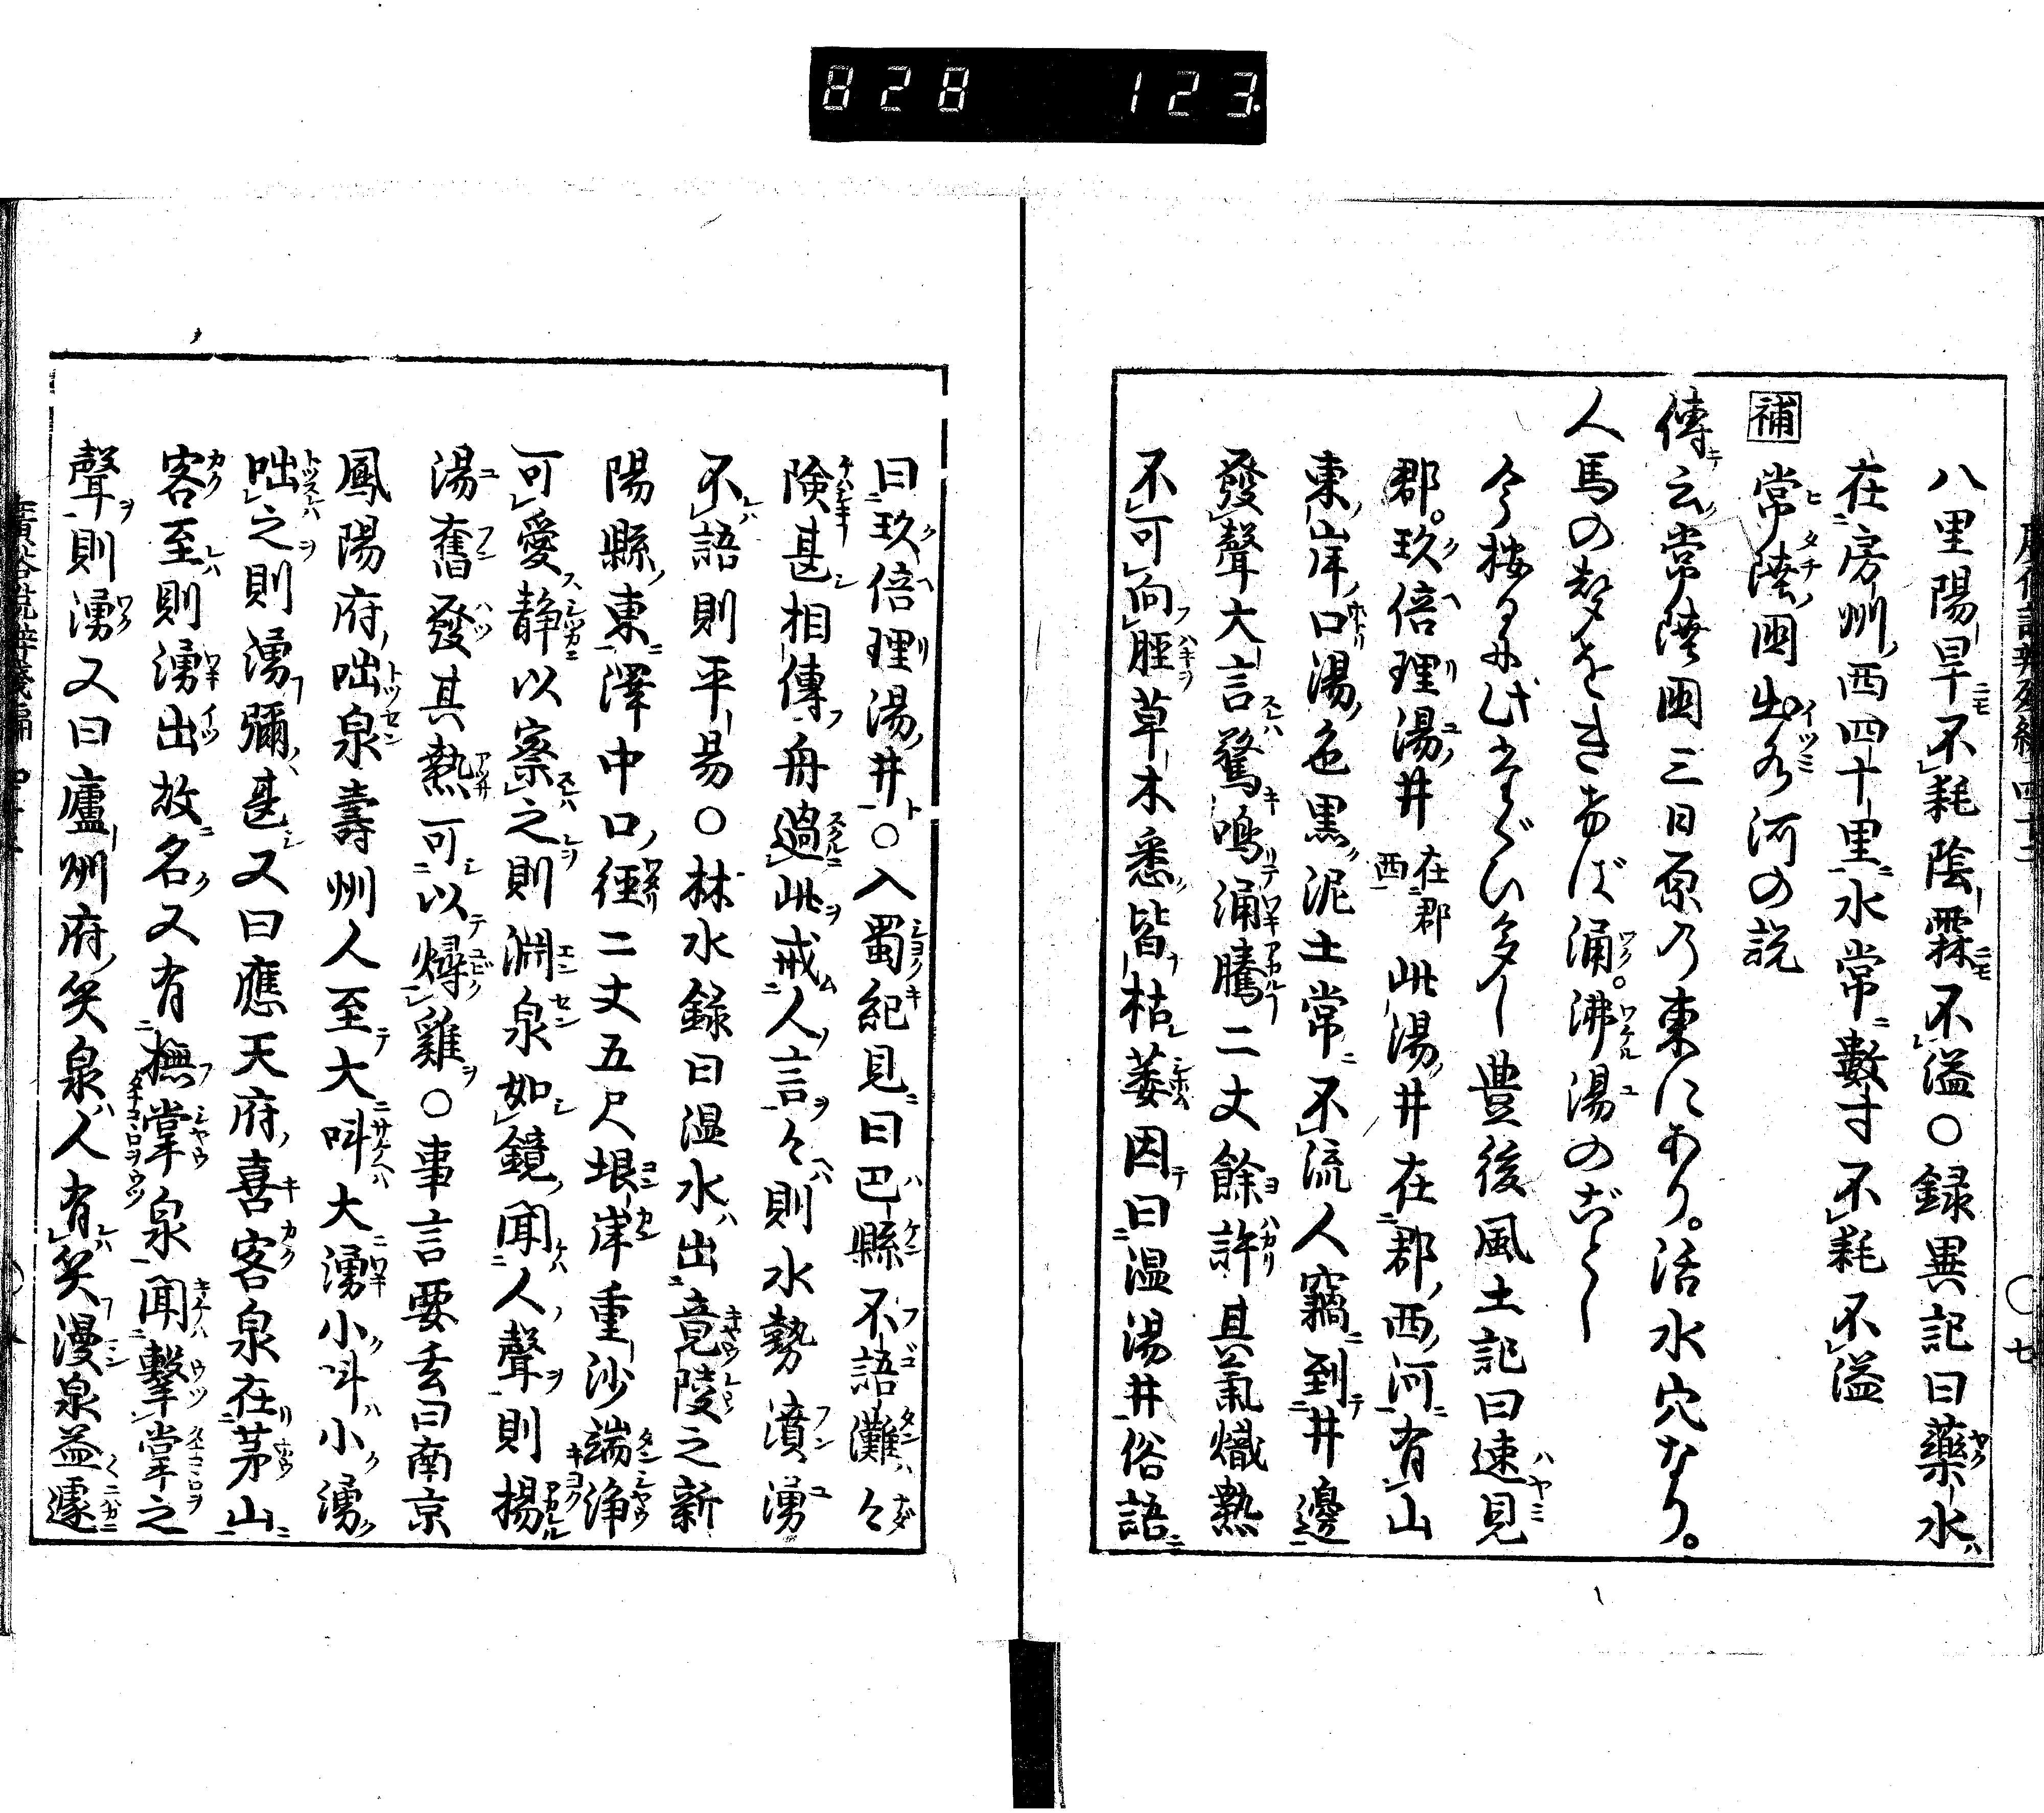 828 123
八里陽旱不耗陰霖不溢○録異記曰藥水
在房州西四十里水常數寸不耗不溢
補 常陸國出水河の説
傳云常陸國三日原の東にあり。活水穴なり。
人馬の聲をきあば涌。沸湯のごとし
今按るに此るいひ多し豊後風土記曰速見
郡。玖倍理湯井 在郡西 此湯井在郡西河有山
東岸口湯色黒泥土常不流人竊到井邊
發聲大言驚鳴涌騰二丈餘許其氣熾熱
不可向脛草木悉皆枯萎因曰温湯井俗語
曰玖倍理湯井○入蜀紀見曰巴縣不語灘々
険甚相傳舟過此戒人言々則水勢濆湧
不語則平易○林水録曰温水出竟陵之新
陽縣東澤中口徑二丈五尺垠岸重沙端浄
可愛静以察之則淵泉如鏡聞人聲則揚
湯奮發其熱可以燖雞○事言要玄曰南京
鳳陽府咄泉壽州人至大呌大湧小呌小湧
咄之則湧彌甚又曰應天府喜客泉在茅山
客至則湧出故名又有撫掌泉聞擊掌之
聲則湧又曰廬州府笑泉人有笑漫泉益遽